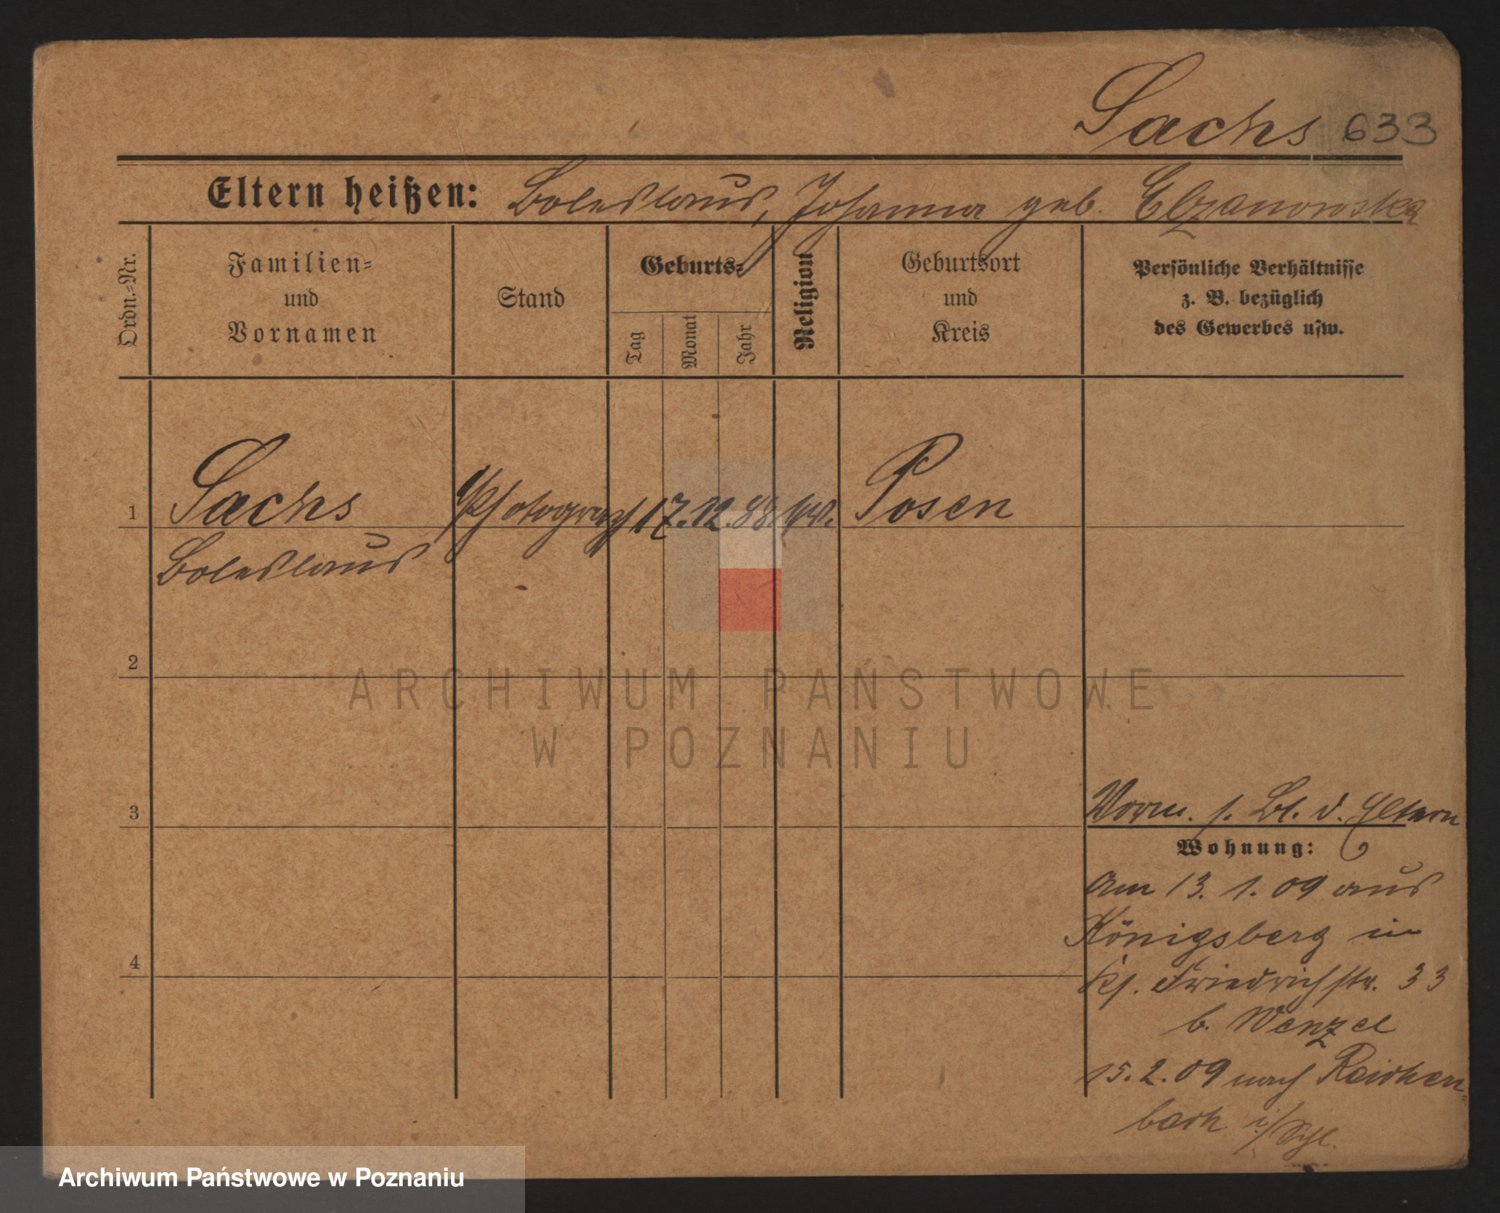 Sachs 633
Eltern heißen: Boleslaus, Johanna geb. Elzanowska
Ordn.-Nr.
Familien-
und
Vornamen
Stand
Geburts-
Tag
Monat
Jahr
Religion
Geburtsort
und
Kreis
Persönliche Verhältnisse
z. B. bezüglich
des Gewerbes usw.
1 Sachs Photograph 17. 12. 88. Posen
Boleslaus
2
ARCHIWUM PAŃSTWOWE
W POZNANIU
3
Vorm. s. Bl. d. Eltern
Wohnung:
Am 13. 1. 09 aus
Königsberg in
4
Friedrichstr. 33
b. Wenzel
15. 2. 09 nach Reichen-
bach i/Schl.
Archiwum Państwowe w Poznaniu